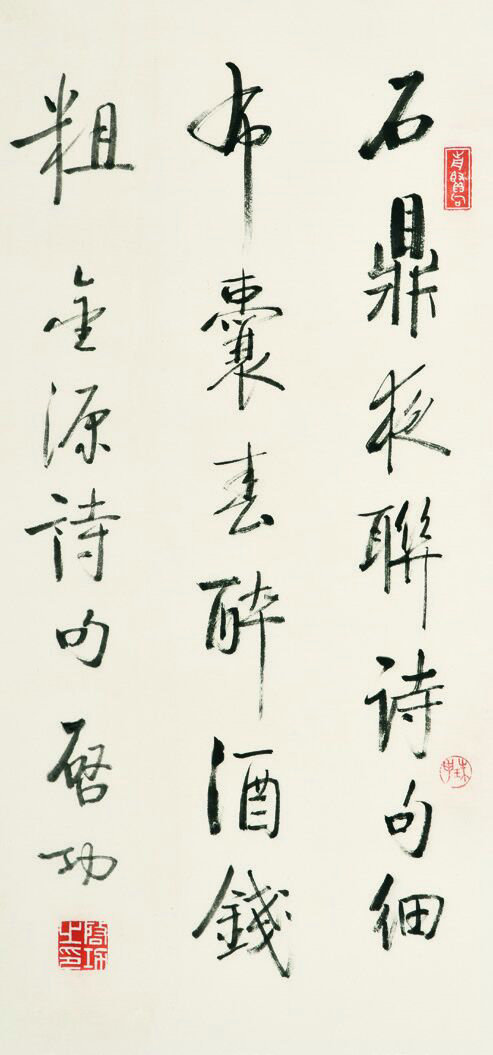 石鼎夜聯詩句細
布囊春醉酒錢
粗 金源詩句 啓功
啓功之印